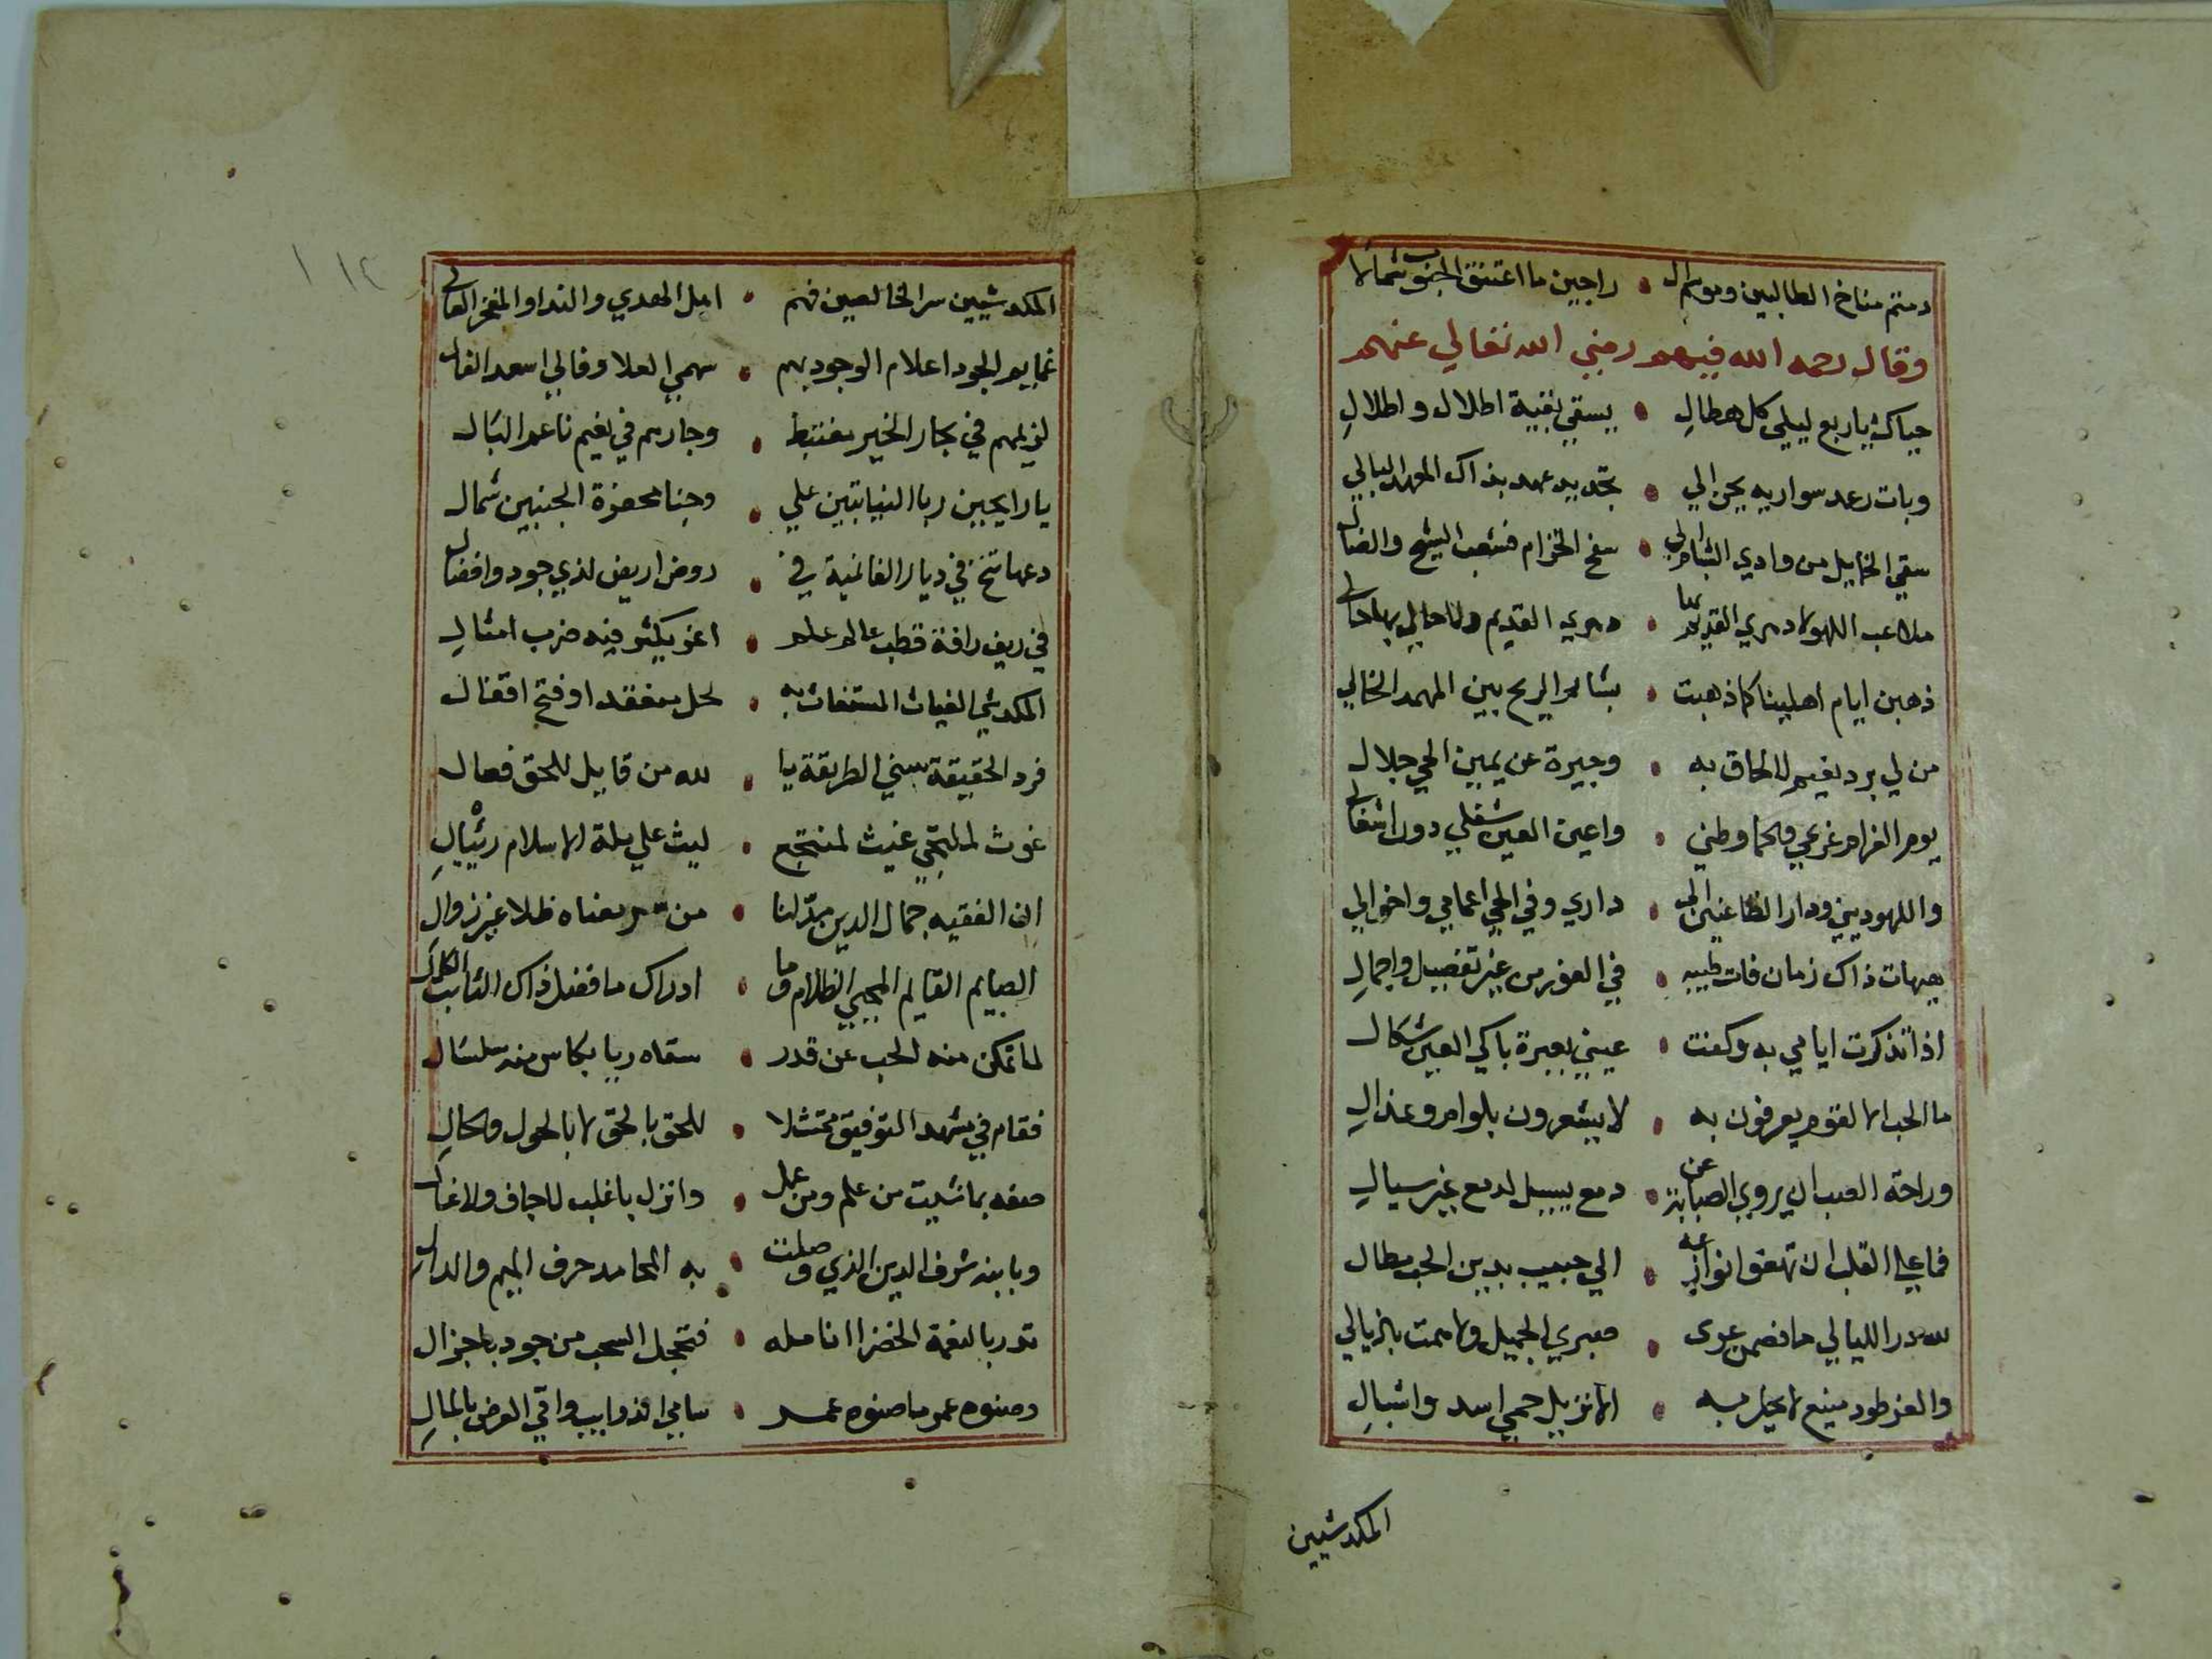 دمتم مناخ الطالبين وموئل الراجين ما اعتنق الجنوب شمالا
وقال رحمه الله فيهم رضي الله تعالي عنهم
حياك يا ربع ليلي كل هطال • يسقي بقية اطلال و اطلالِ
وبات رعد سواريه يحن الي • تجديد عهد بذاك المعهد البالي
سقي الخمايل من وادي البشام الي • سفح الخزام فشعب الشيح والضال
ملاعب اللهو لا دهري القديم بها • دهري القديم ولا حالي بها حالي
ذهبن ايام اهلينا كما ذهبت • بشاشة الريح بين المهمه الخالي
من لي برد نعيم لا لحاق به • وجيرة عن يمين الحي حلال
يوم الغرام غرامي والحما وطني • واعين العين شغلي دون اشغالي
واللهو ديني ودار الظاعنين الي • داري وفي الحي اعمامي واخوالي
هيهات ذاك زمان فات طيبه • في الغور من غير تفصيل واجمالِ
اذا تذكرت ايامي به وكفت • عيني بعبرة باكي العين
ما الحب الا لقوم يعرفون به • لا يشعرون بلوام وعذالِ
وراحة الصب ان يروي الصبابة عن • دمع يسيل لدمع غير سيالِ
فما علي القلب ان تهفو نوازعه • الي حبيب بدين الحب مطال
لله در الليالي ما فصمن عرى • صبري الجميل ولا همت بازيالي
والعز طود منيع لا يحل به • الا نزيل حمي اسد واشبالِ
المكدشيين
١١٢
المكدشيين سر الخالصين فهم • اهل الهدي والندا والمفخر العالي
غمايم الجود اعلام الوجود بهم • سهمي العلا وفالي اسعد الفال
نزيلهم في بحار الخير مغتبط • وجارهم في نعيم ناعم البال
يا رايحين ربا النيابتين علي • وجنا محفزة الجنبين شمال
دعها تنخ في ديار الغانمية في • روض اريض لذي جود وافضال
في ريف رافة قطب عالم علم • اغر يكثر فيه ضرب امثالِ
المكدشي الغياث المستغاث به • لحل منعقد او فتح اقفال
فرد الحقيقة سني الطريقة يا • لله من قايل للحق فعال
غوث لملتجي غيث لمنتجع • ليث علي ملة الاسلام رئبالِ
ان الفقيه جمال الدين مد لنا • من معناه ظلا غير زوال
الصايم القايم المحيي الظلام وما • ادراك ما فضل ذاك التايب
لما تمكن منه الحب عن قدر • سقاه ريا بكاس منه سلسال
فقام في مشهد التوفيق ممتثلا • للحق بالحق لا بالحول والحالِ
صفه بما شيت من علم ومن عمل • وانزل با غلب لا جاف ولا غال
وبابنه شرف الدين الذي وصلت • به المحامد حرف الميم والدال
تدر بالنعمة الخضرا انامله • فتخجل السحب من جود باجزال
وصنوه عمر ما صنوه عمر • سامي الذوايب واقي العرض بالمالِ